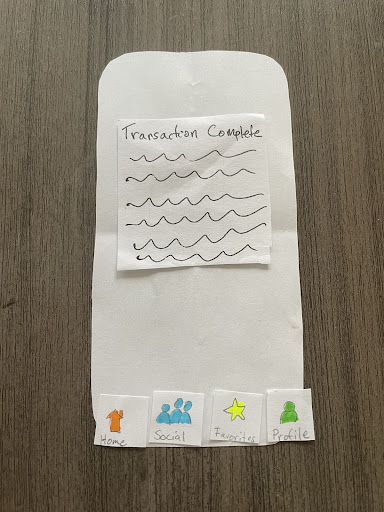 Transaction Complete
Home
Social
Favorites
Profile